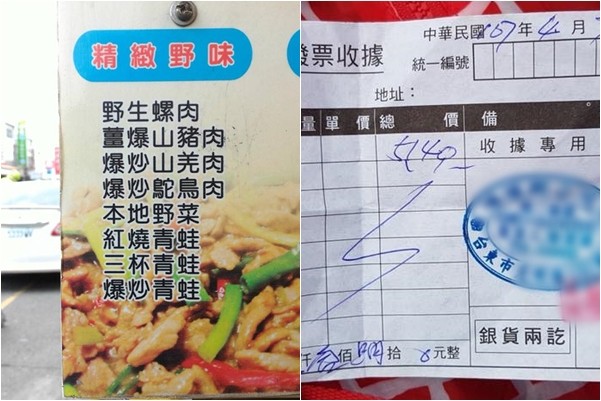 精緻野味
野生螺肉
薑爆山豬肉
爆炒山羌肉
爆炒鴕鳥肉
本地野菜
紅燒青蛙
三杯青蛙
爆炒青蛙
中華民國107年4月
發票收據
統一編號
地址：
量 單價 總價 備
收據專用
台東市
銀貨兩訖
仟 佰 拾 元整